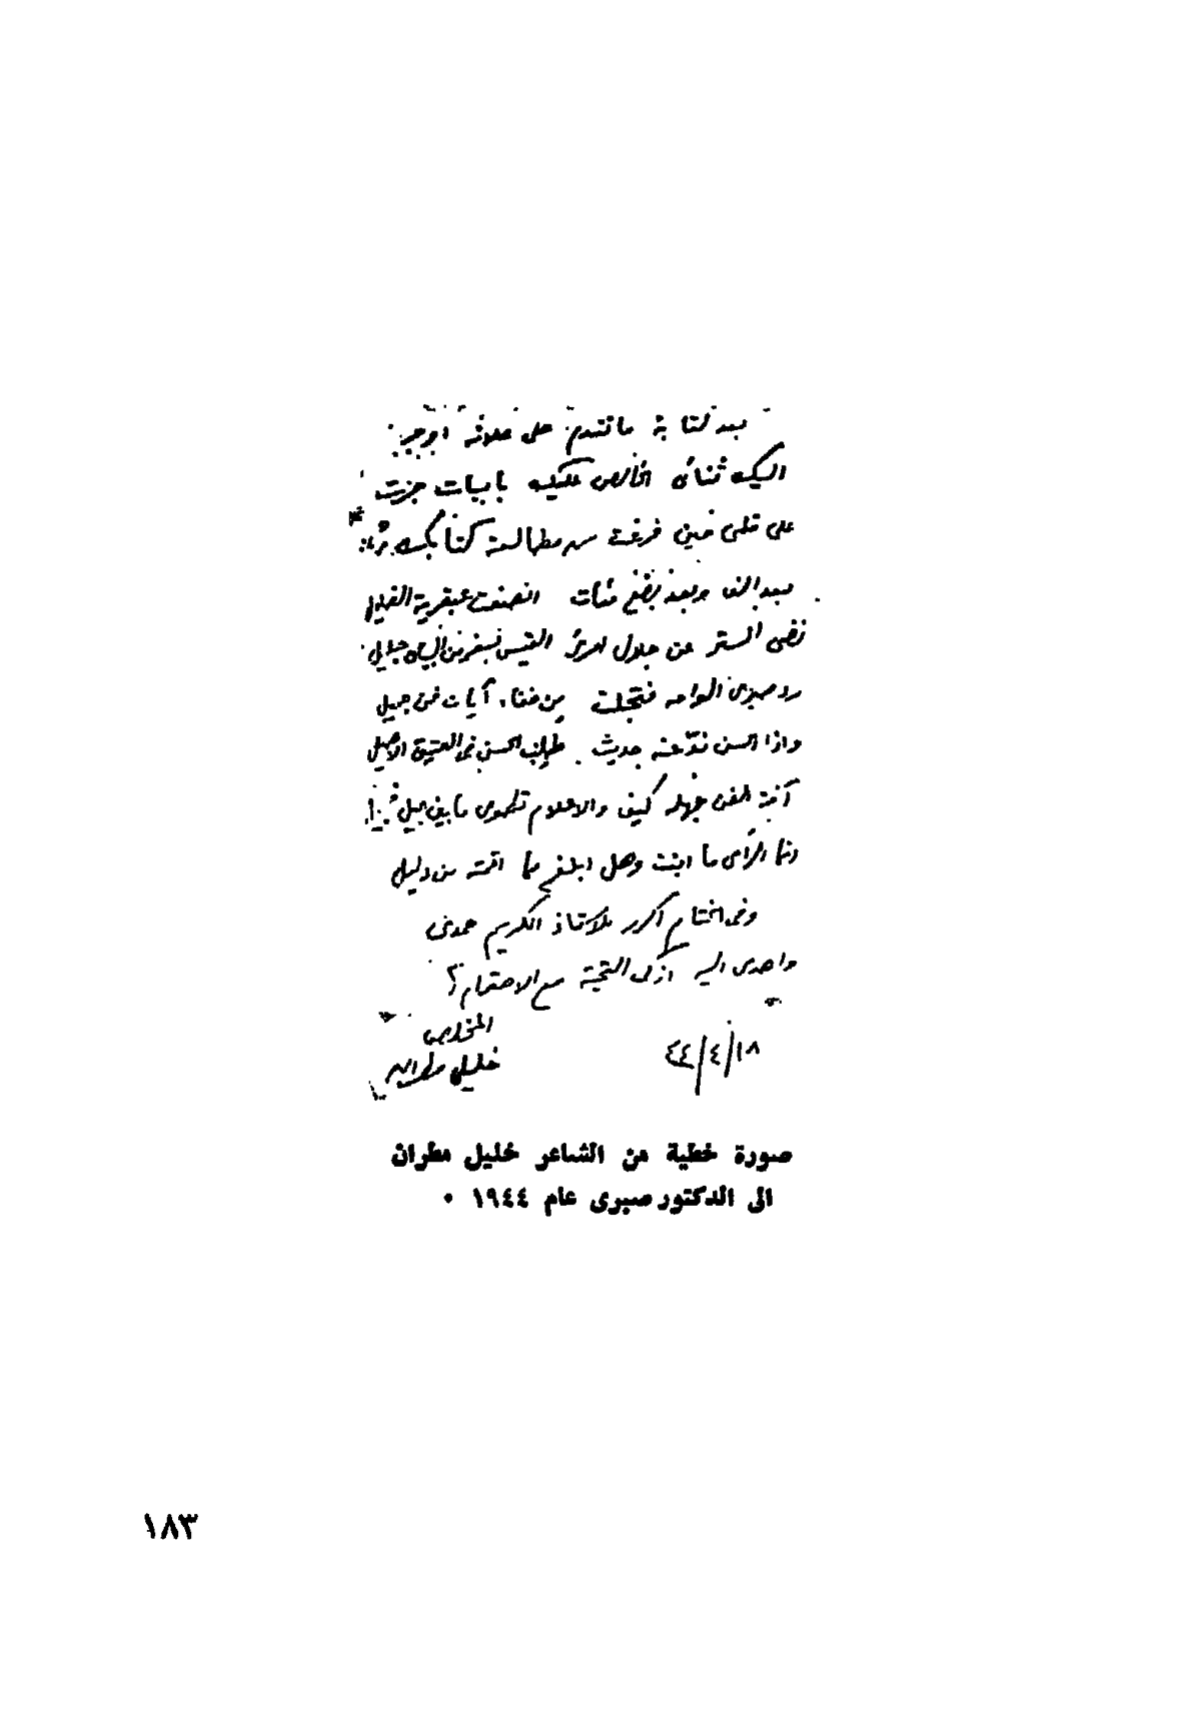 بعد كتابة ما تقدم على علاته اوجه
اليك ثنائى الخالص عليك بابيات جرت
على قلمى حين فرغت من مطالعة كتابك
بعد الف وبعد بضع مئات انصفت عبقرية الضليل
نضى الستر عن جلال امرئ القيس
رد صبرى الواحه فتجلت من خفاء آيات فن جميل
واذا الحسن ند عنه حديث طلب الحسن فى العتيق الاصيل
آفة الفن جهله كيف والاعلام تطوى ما بين جيل
انما الرأى ما ابنت وهل ابلغ مما اقمته من دليل
وفى الختام أكرر للاستاذ الكريم حمدى
واهدى اليه ازكى التحية مع الاحترام
المخلص
خليل مطران
١٨/٤/٤٤
صورة خطية من الشاعر خليل مطران
الى الدكتور صبرى عام ١٩٤٤ ٠
١٨٣